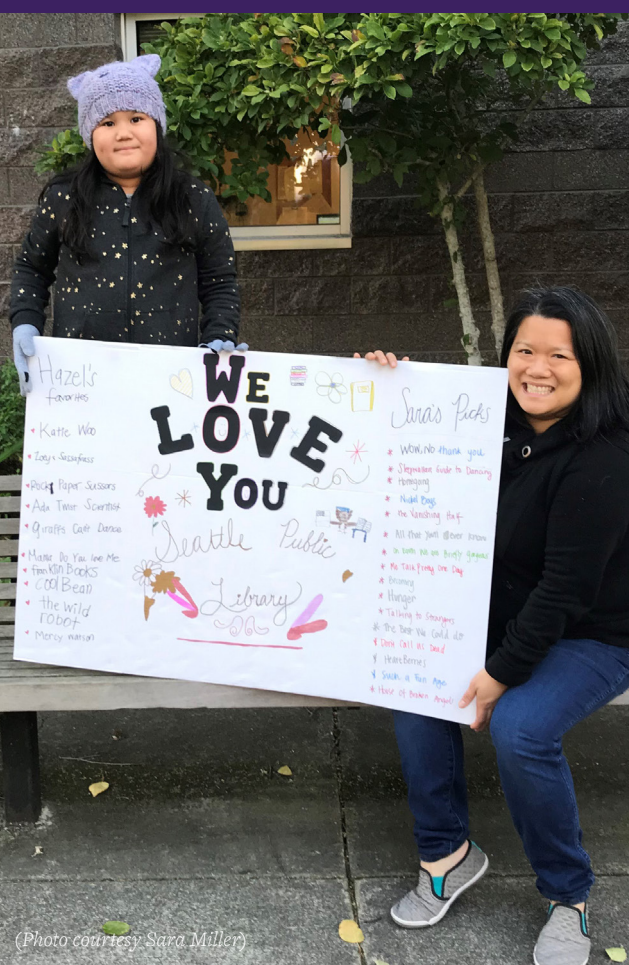 Hazel's
favorites
Katie Woo
Zoey & Sassafrass
Rock Paper Scissors
Ada Twist Scientist
Giraffes Can't Dance
Mama Do You Love Me
Franklin Books
Cool Bean
the wild
robot
Mercy Watson
WE
LOVE
YOU
Seattle Public
Library
Sara's Picks
Wow, No thank you
Stepmother Guide to Dancing
Homegoing
Nickel Boys
The Vanishing Half
All that you'll ever know
On Earth We are Briefly gorgeous
Me Talk Pretty One Day
Becoming
Hunger
Talking to Strangers
The Best We Could do
Don't Call us Dead
Heart Berries
Such a Fun Age
House of Broken Angels
(Photo courtesy Sara Miller)